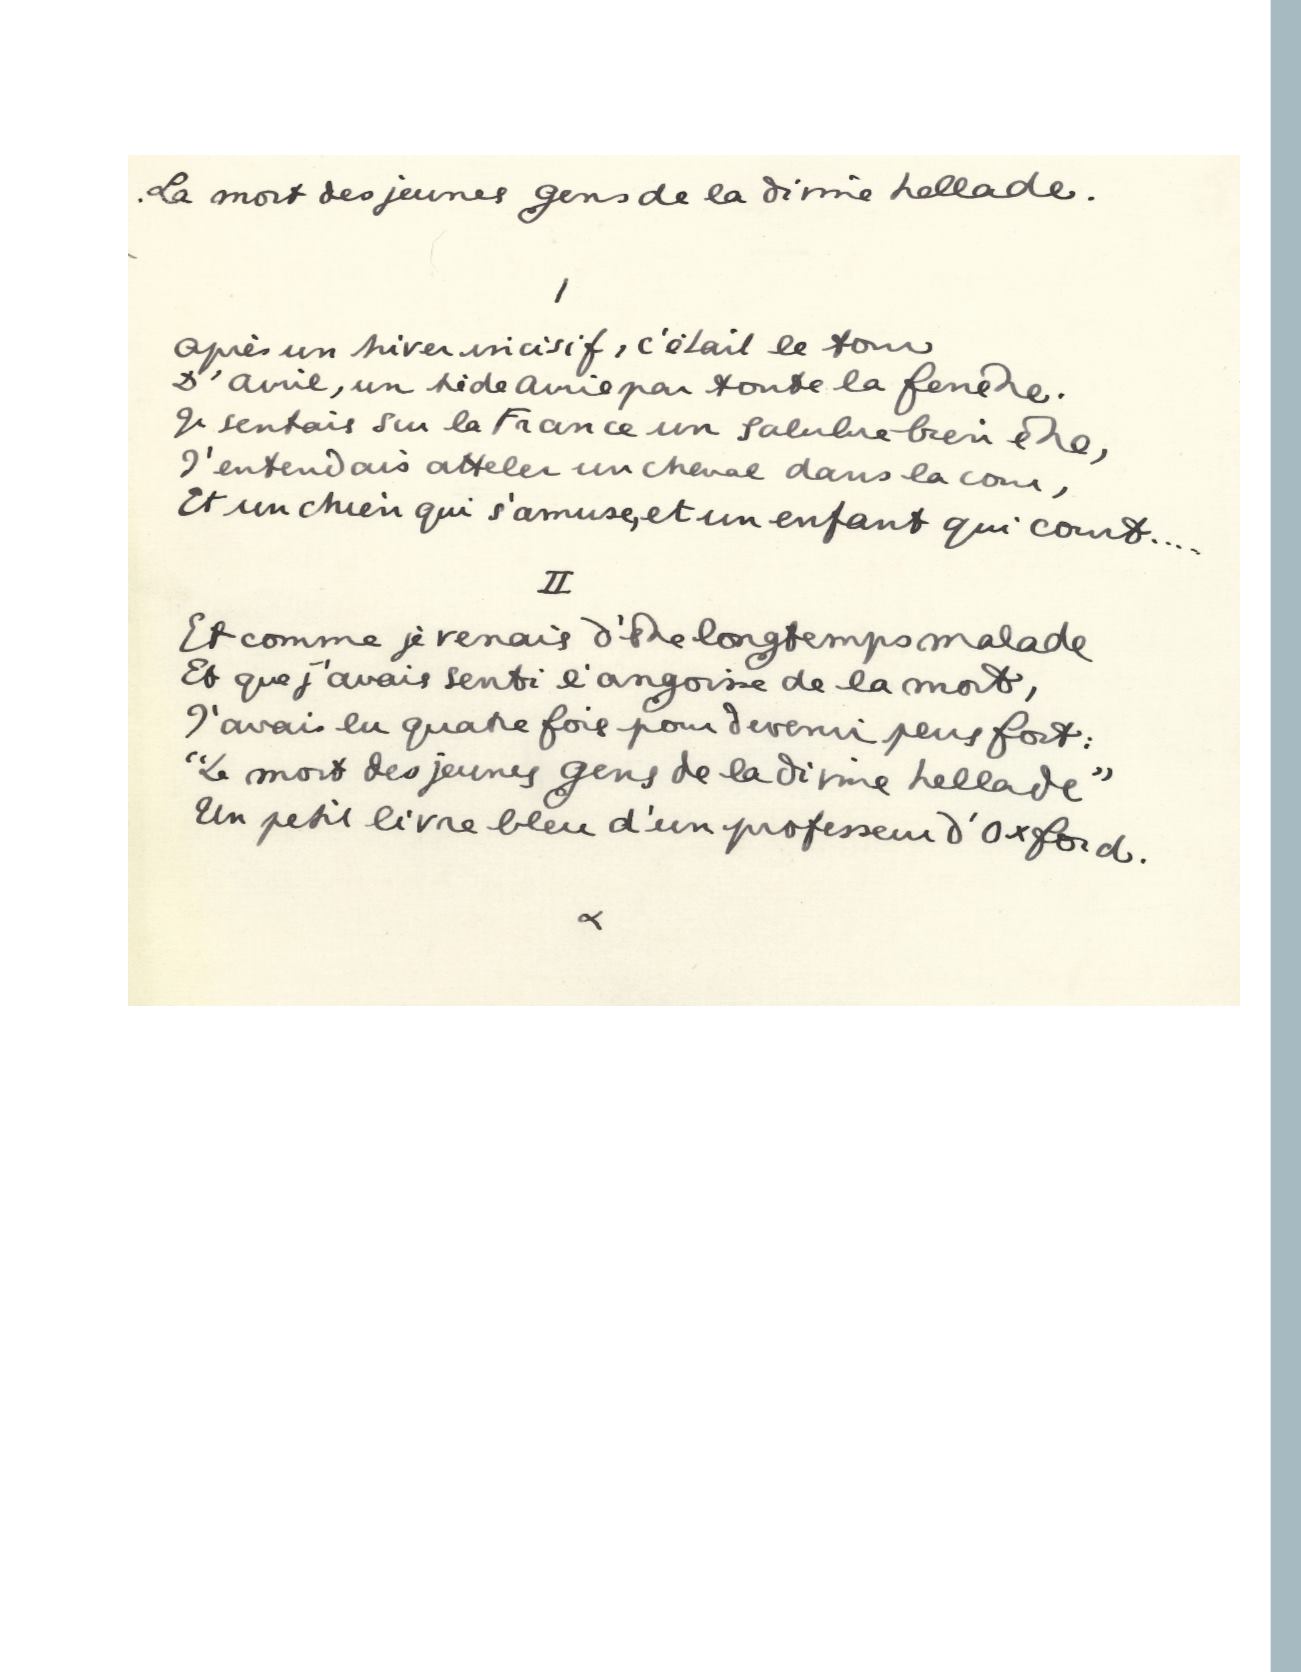 La mort des jeunes gens de la divine hellade.
I
Après un hiver incisif, c'était le tour
D'Avril, un tiède Avril par toute la fenêtre.
Je sentais sur la France un salubre bien être,
J'entendais atteler un cheval dans la cour,
Et un chien qui s'amuse, et un enfant qui court....
II
Et comme je venais d'être longtemps malade
Et que j'avais senti l'angoisse de la mort,
J'avais lu quatre fois pour devenir plus fort:
"La mort des jeunes gens de la divine hellade"
Un petit livre bleu d'un professeur d'Oxford.